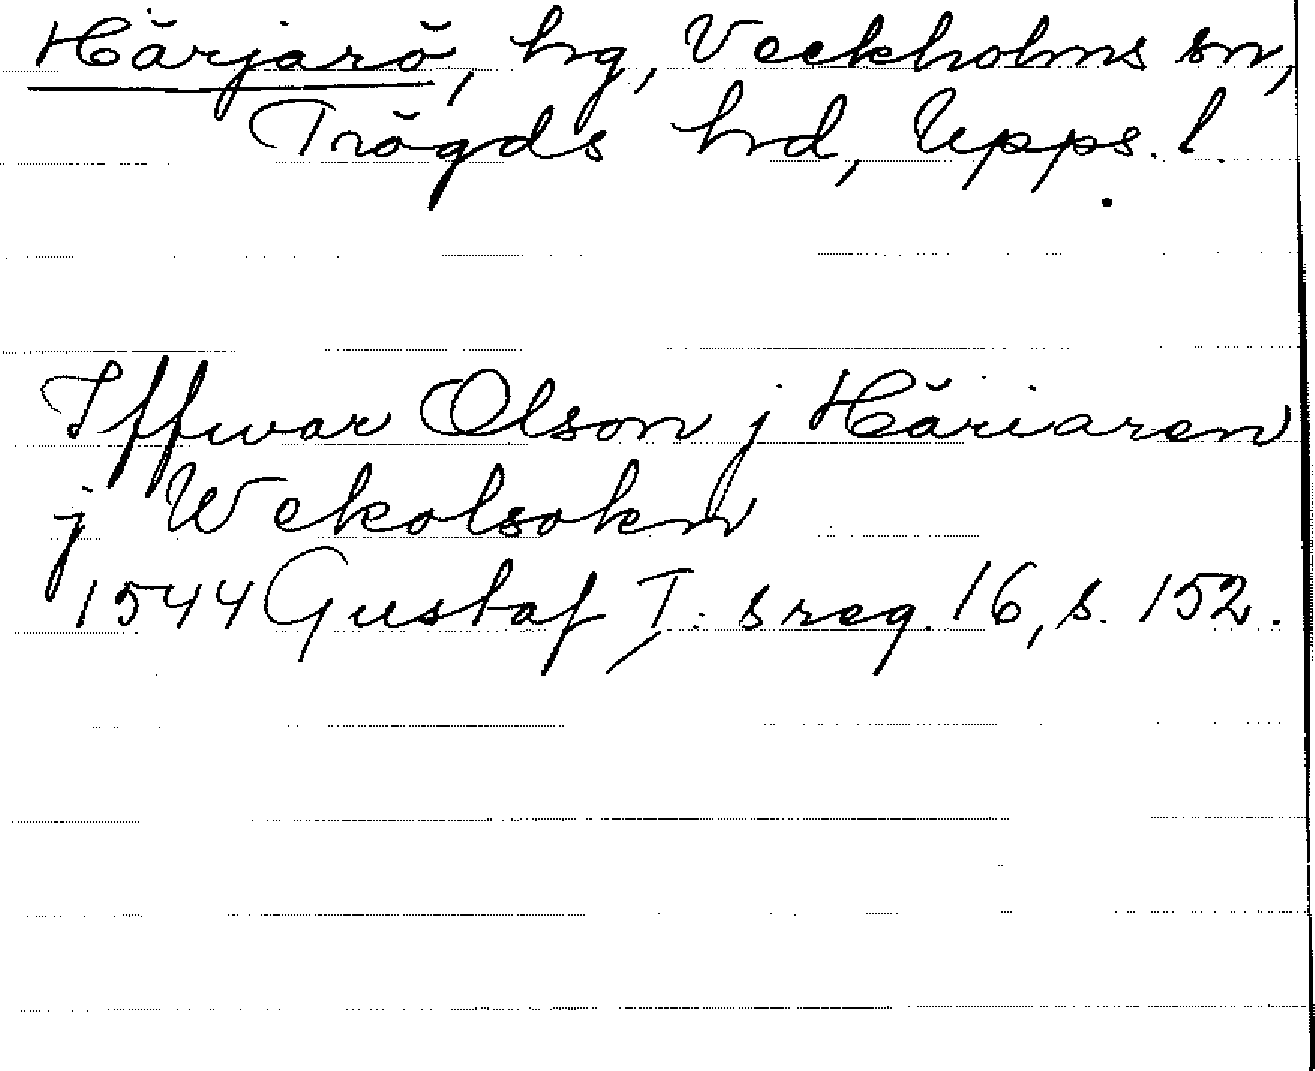 Härjarö, hg, Veckholms sn,
Trögds hd, Upps. l.
Iffwar Olson j Häriaren
j Wekolsokn
1544 Gustaf I: s reg. 16, s. 152.